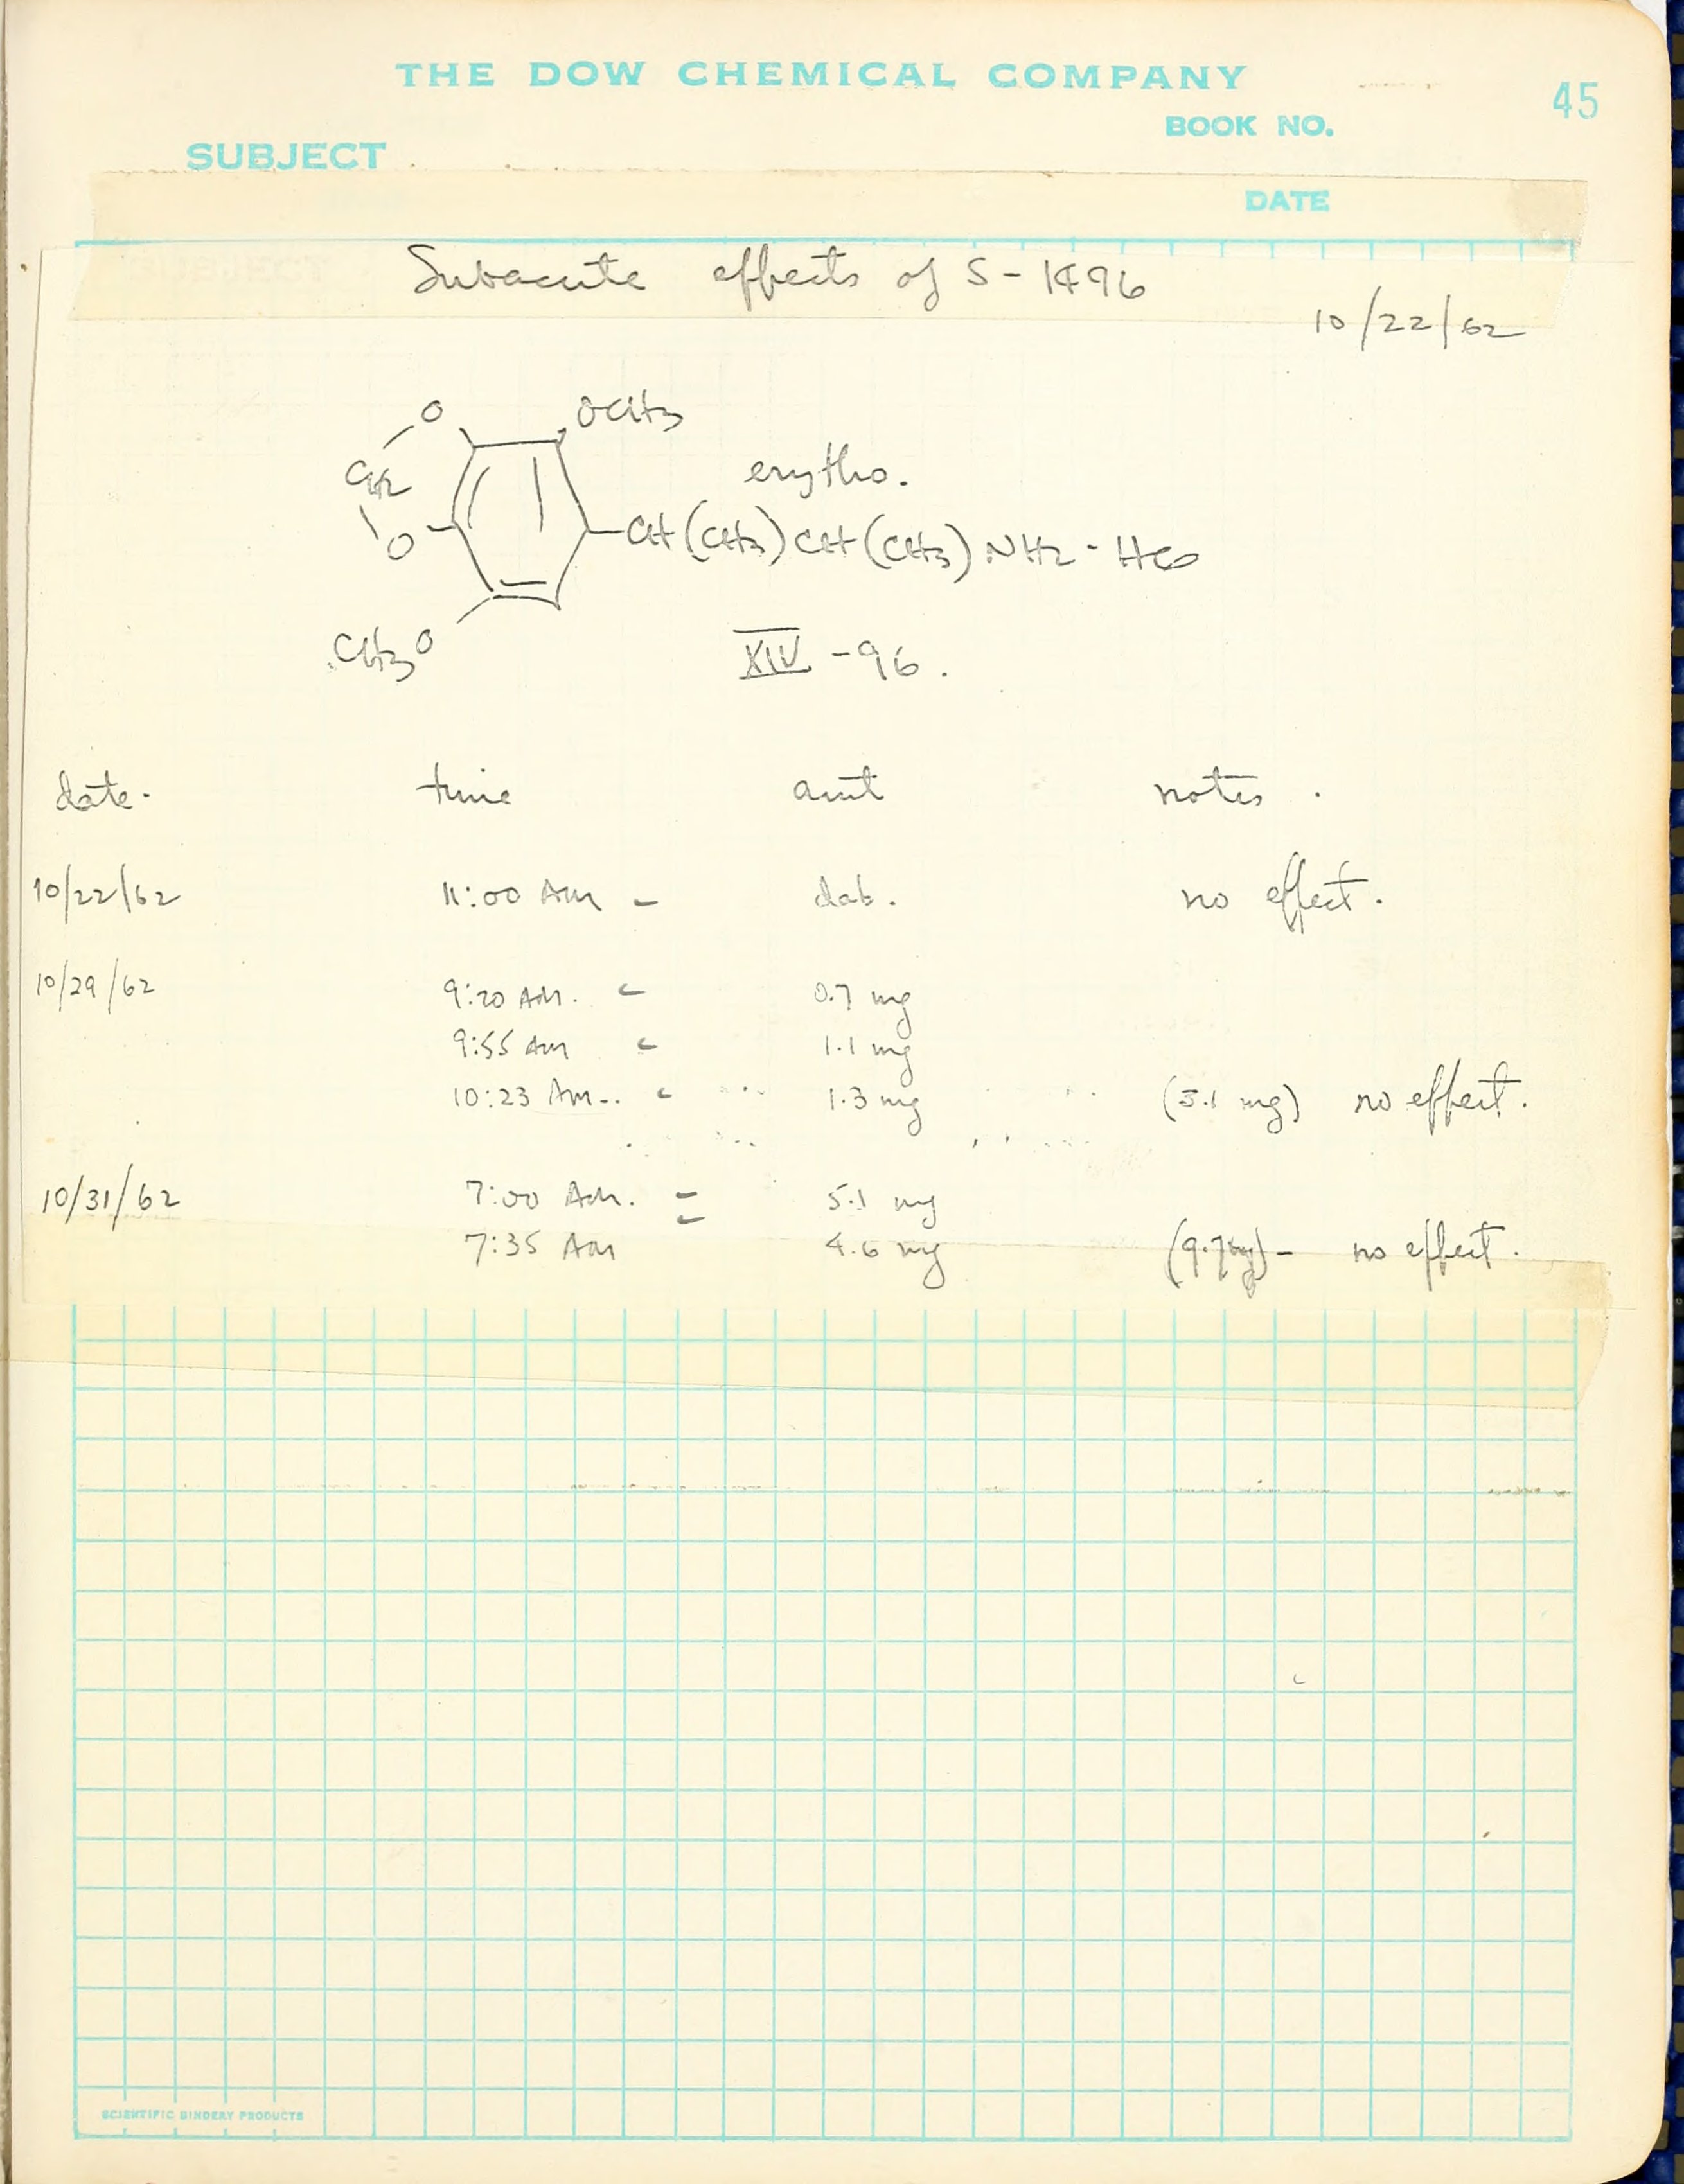 THE DOW CHEMICAL COMPANY
45
BOOK NO.
SUBJECT
DATE
Subacute effects of S-1496
10/22/62
O OCH3
CH2 erythro.
O CH(CH3)CH(CH3)NH2·HCl
CH3O XIV-96.
date. time amt notes.
10/22/62 11:00 AM - dab. no effect.
10/29/62 9:20 AM. - 0.7 mg
9:55 AM - 1.1 mg
10:23 AM.. - 1.3 mg (3.1 mg) no effect.
10/31/62 7:00 AM. - 5.1 mg
7:35 AM - 4.6 mg (9.7mg) - no effect.
SCIENTIFIC BINDERY PRODUCTS